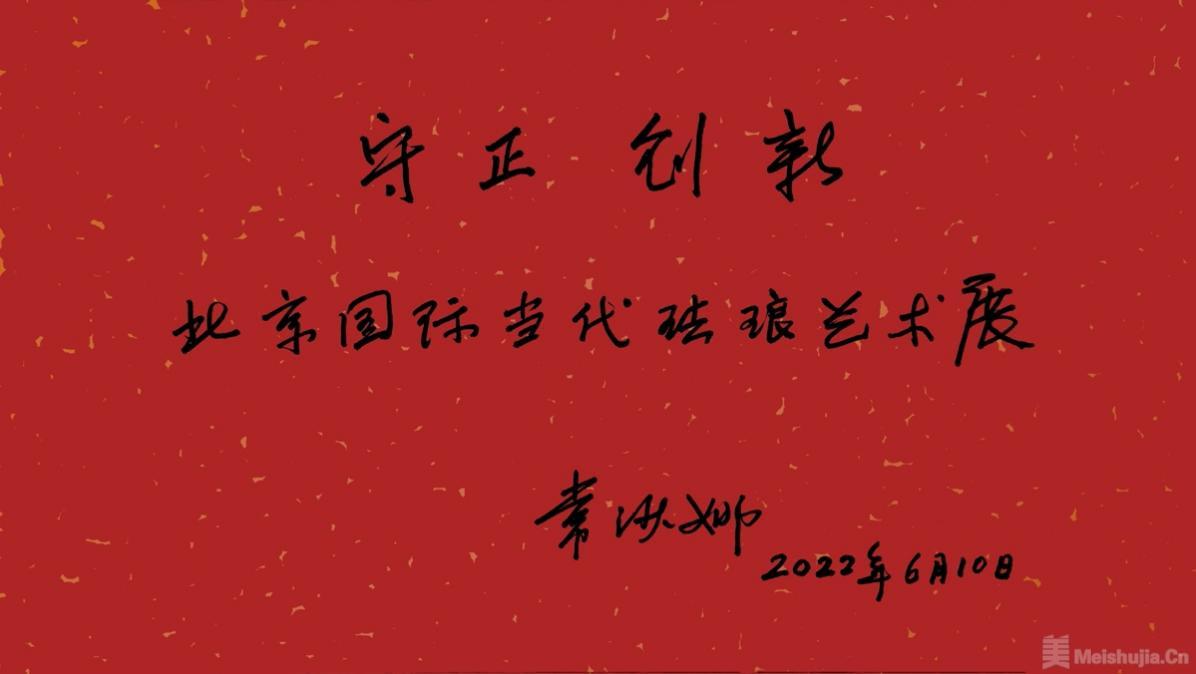 守正创新
北京国际当代珐琅艺术展
常沙娜
2022年6月10日
美 Meishujia.Cn